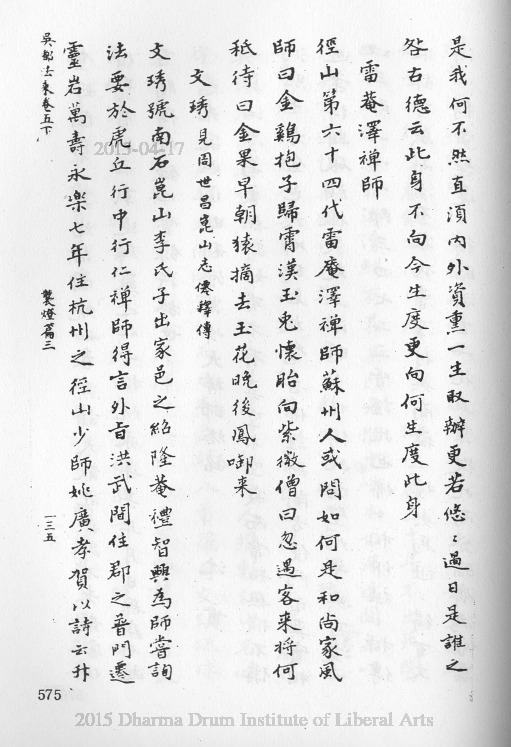 是我何不然直須內外資熏一生取辦更若悠〻過日是誰之
咎古德云此身不向今生度更向何生度此身
雷菴澤禪師
徑山第六十四代雷庵澤禪師蘇州人或問如何是和尚家風
師曰金鷄抱子歸霄漢玉兔懷胎向紫微僧曰忽遇客來將何
秪待曰金果早朝猿摘去玉花晚後鳳啣來
文琇見周世昌崑山志僊釋傳
文琇號南石崑山李氏子出家邑之紹隆菴禮智興為師嘗詢
法要於虎丘行中行仁禪師得言外旨洪武間住郡之普門遷
靈岩萬壽永樂七年住杭州之徑山少師姚廣孝賀以詩云升
吳都法乘卷五下
熒燈篇三
一三五
575
2015-04-17
2015 Dharma Drum Institute of Liberal Arts